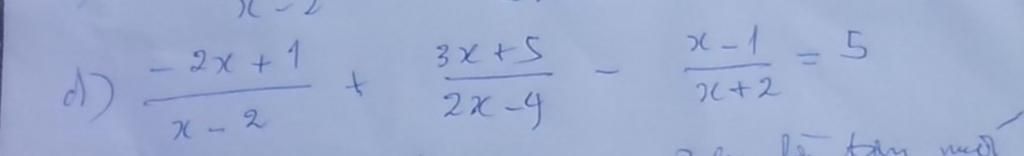 x - 2
d) \frac{-2x+1}{x-2} + \frac{3x+5}{2x-4} - \frac{x-1}{x+2} = 5